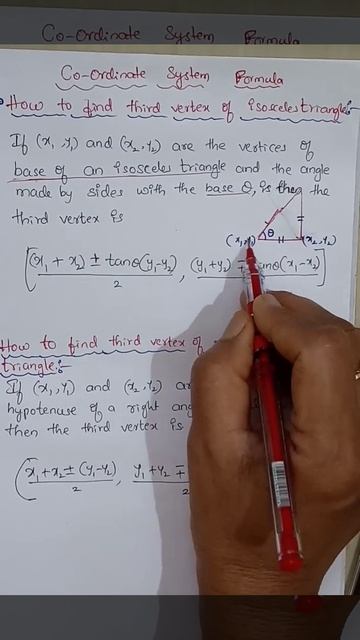 Co-Ordinate System Formula
Co-Ordinate System Formula
How to find third vertex of isosceles triangle:-
If (x₁, y₁) and (x₂, y₂) are the vertices of
base of an isosceles triangle and the angle
made by sides with the base θ, is then the
third vertex is
θ (x₂, y₂)
[(x₁ + x₂) ± tanθ(y₁-y₂)/2, (y₁+y₂) ∓ tanθ(x₁-x₂)
How to find third vertex of
triangle:-
If (x₁, y₁) and (x₂, y₂) ar
hypotenuse of a right ang
then the third vertex is
(x₁+x₂ ± (y₁-y₂)/2, y₁+y₂ ∓